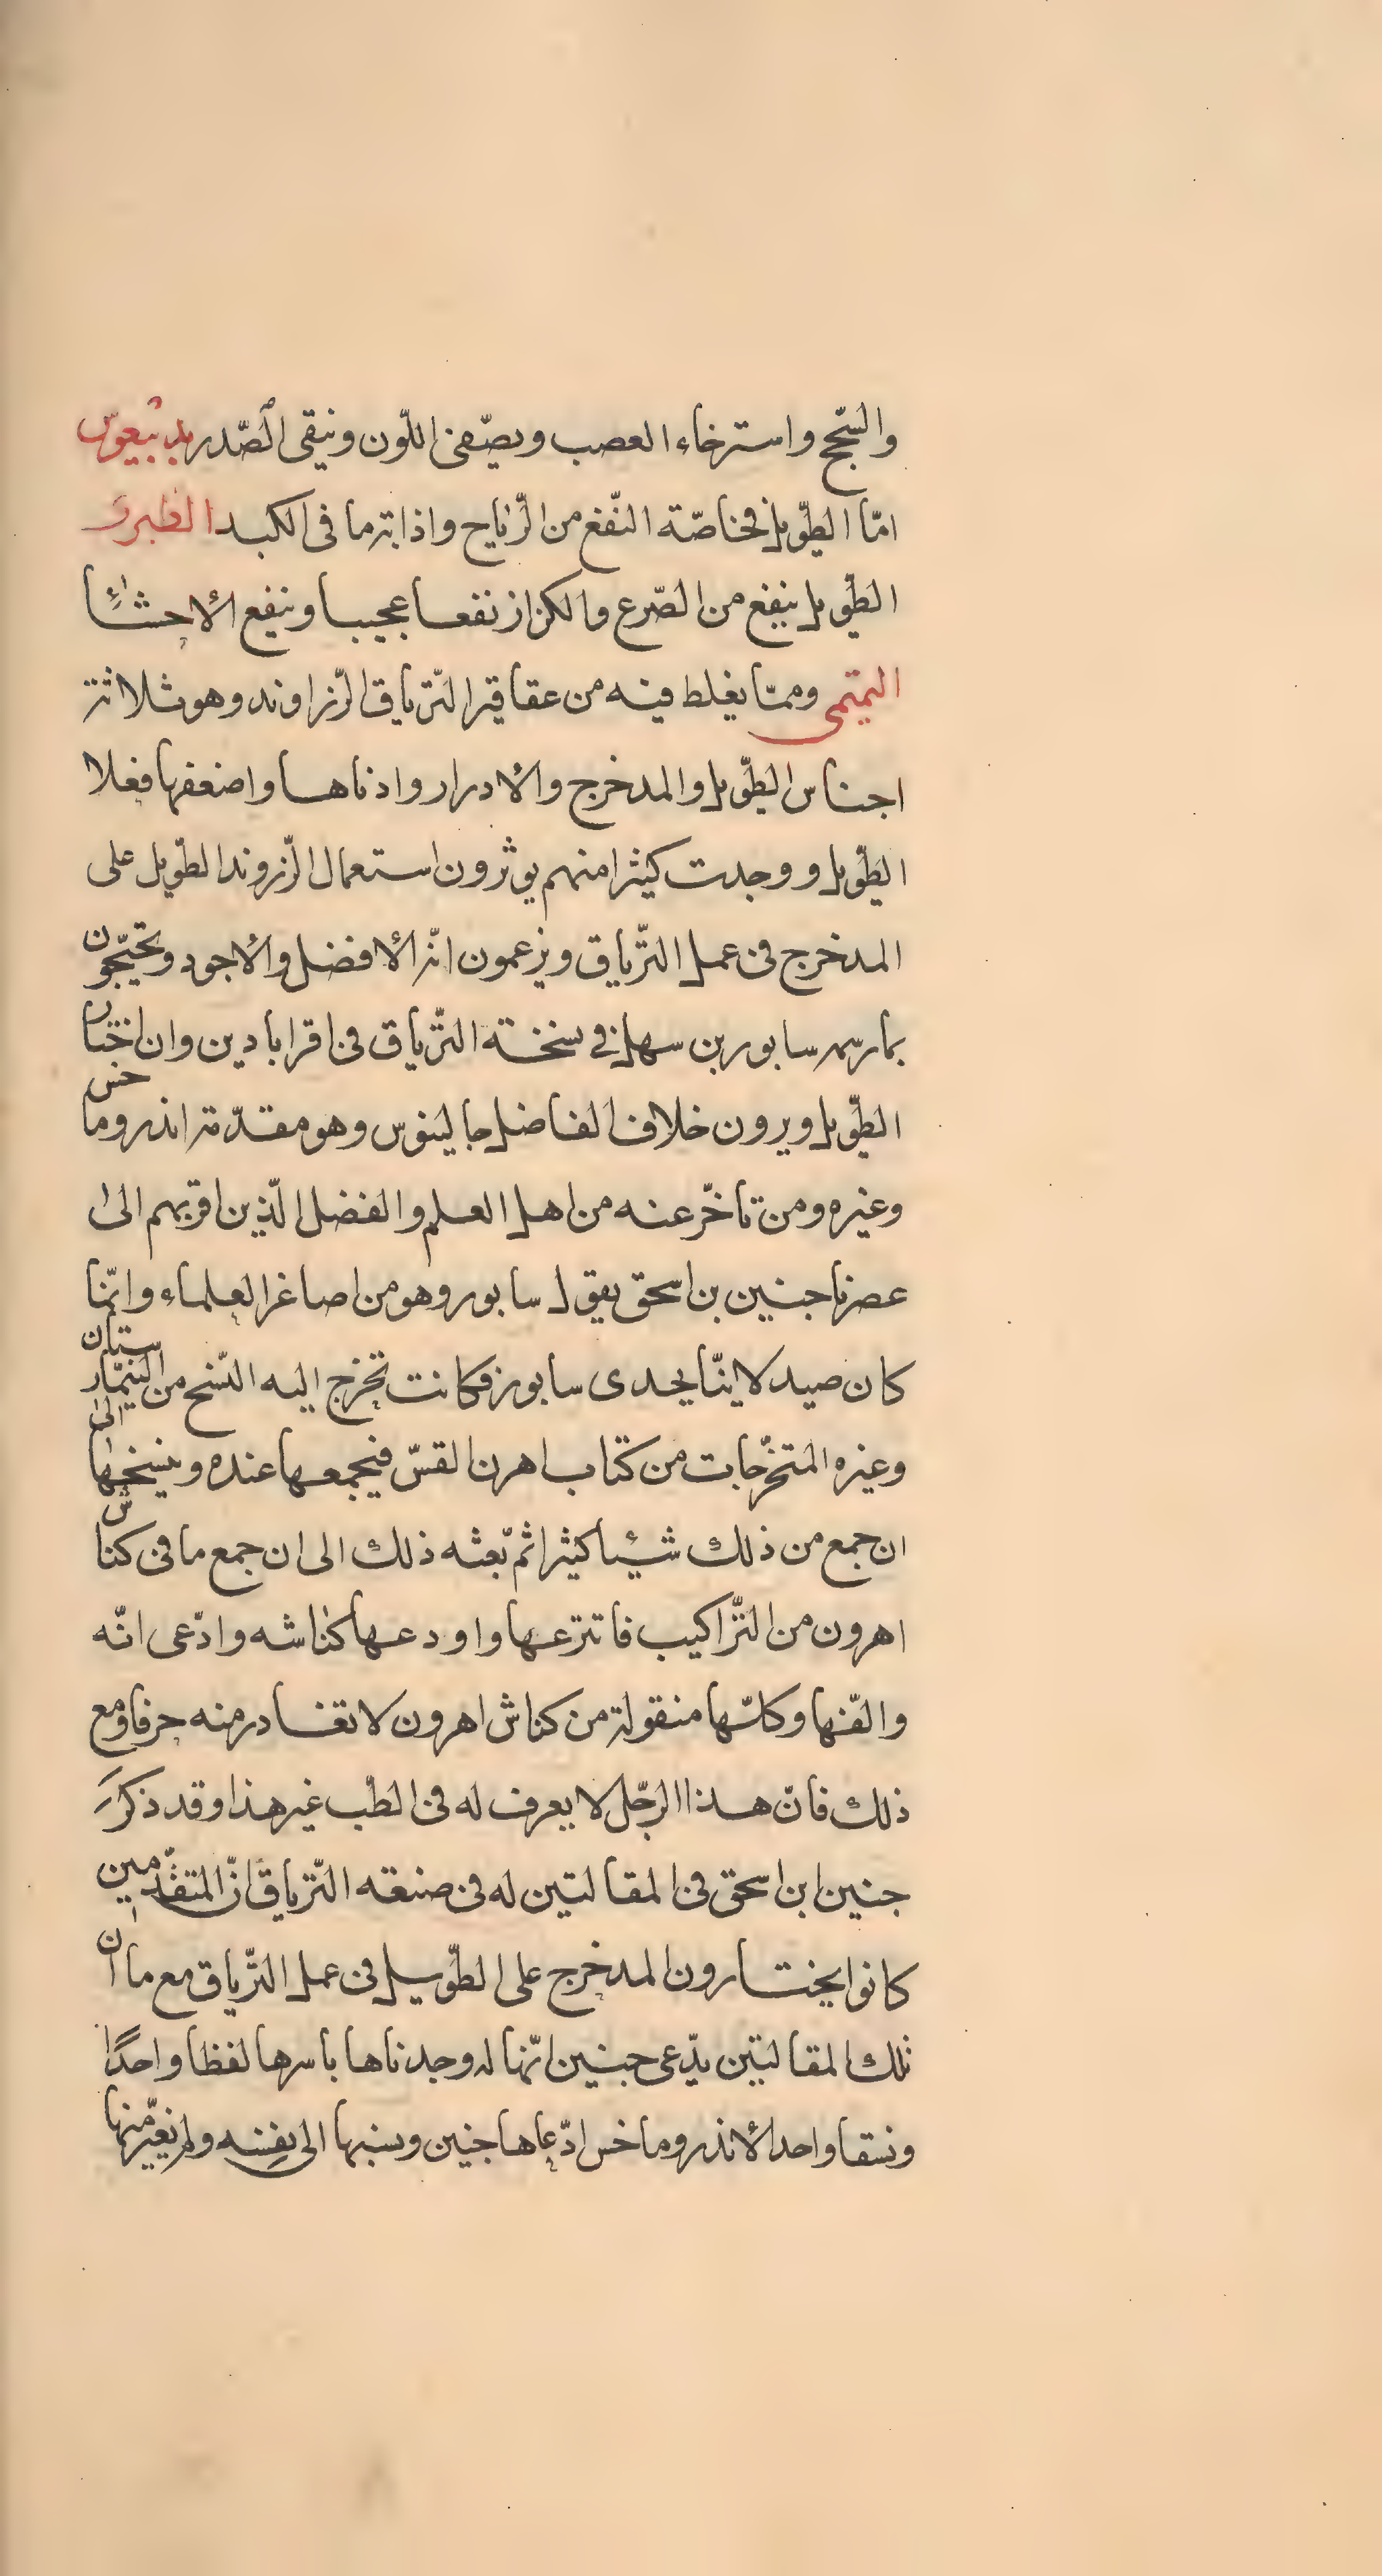 والسّحج واسترخاء العصب ويصّفى اللّون وينقى الصّدر بديغورس
امّا الطّويل فخاصّة النّفع من الرّياح واذابة ما فى الكبد الطبرى
الطّويل ينفع من الصّرع والكزاز نفعا عجيبا وينفع الاحشاء
التميمى وممّا يغلط فيه من عقاقير التّرياق الزّراوند وهو ثلاثة
اجناس الطّويل والمدخرج والادرار وادناها واضعفها فعلا
الطّويل ووجدت كثيرا منهم يوثرون استعمال الزّروند الطّويل على
المدخرج فى عمل التّرياق ويزعمون انّه الافضل والاجود ويحتجّون
بما رسمه سابور بن سهل فى نسخة التّرياق فى اقرابادين وان اختيار
الطّويل ويرون خلاف الفاضل جالينوس وهو مقدّمة اندروماخس
وغيره ومن تاخّر عنه من اهل العلم والفضل الّذين اقربهم الى
عصرنا حنين بن اسحق يقول سابور وهو من اصاغر العلماء وانّما
كان صيدلاينّا بجندى سابور فكانت تخرج اليه النّسخ من البيمارستان
وغيره المتخرّجات من كتاب اهرن القسّ فيجمعها عنده وينسخها الى
ان جمع من ذلك شيئا كثيرا ثمّ بعثه ذلك الى ان جمع ما فى كنّاش
اهرون من التّراكيب فانتزعها واودعها كناشه وادّعى انّه
والفّها وكلّها منقولة من كناش اهرون لا تغادر منه حرفا ومع
ذلك فانّ هذا الرّجل لا يعرف له فى الطّب غير هذا وقد ذكر
حنين ابن اسحق فى المقالتين له فى صنعه التّرياق انّ المتقدّمين
كانوا يختارون المدخرج على الطّويل فى عمل التّرياق مع ما ان
تلك المقالتين يدّعى حنين انّها له وجدناها باسرها لفظا واحدًا
ونسقا واحدا لاندروماخس ادّعاها حنين ونسبها الى نفسه ولم يغيّر منها